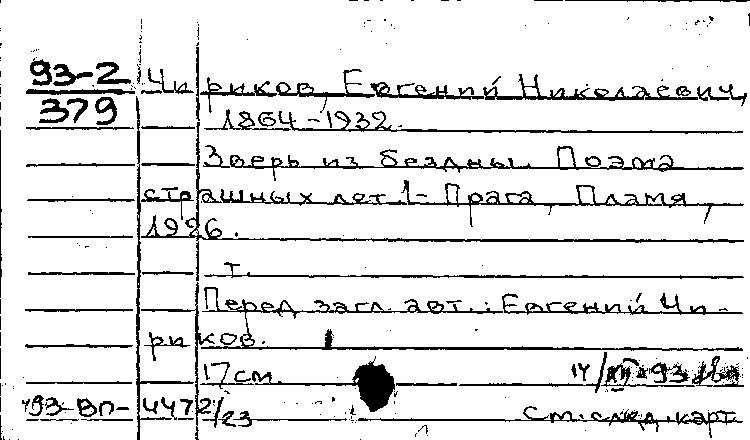 93-2 Чириков, Евгений Николаевич,
379 1864-1932.
Зверь из бездны. Поэма
страшных лет. - Прага, Пламя,
1926.
т.
Перед загл. авт.: Евгений Чи-
риков.
17 см. 14/XII-93
93-Вп- 4472/23 См. след. карт.